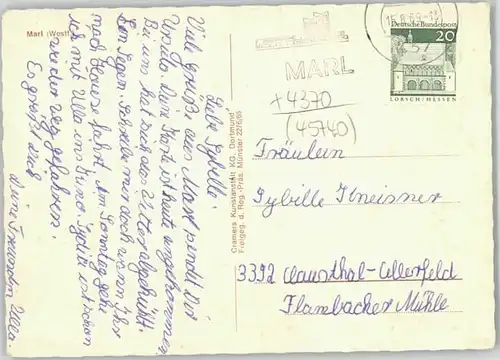 Marl (Westf
Liebe Sybille
Viel Grüße aus Marl sendet Dir
Ulla. Deine Karte ist heute angekommen.
Bei uns hat sich das Wetter abgekühlt
Regen. Schreibe mir doch wann Ihr
nach Hause fahrt. Am Sonntag gehe
ich mit Ulla ins Kino. ist schon
wieder weg gefahren.
Es grüßt Dich
deine Freundin Ulla.
Cramers Kunstanstalt KG, Dortmund
Freigeg. d. Reg.-Präs. Münster 22/6/65
MARL
+4370
(45740)
15.8.69-1
Deutsche Bundespost
20
LORSCH/HESSEN
Fräulein
Sybille Kneisner
3392 Clausthal-Zellerfeld
Flambacher Mühle